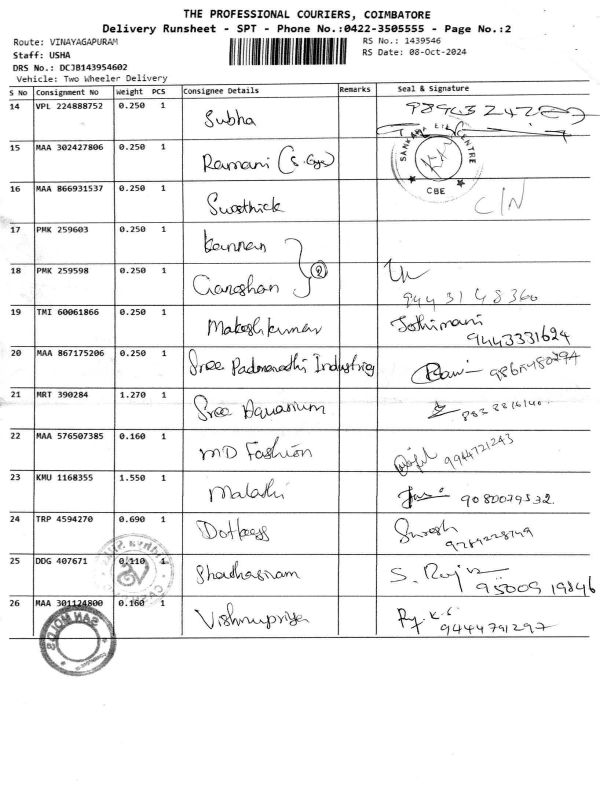 THE PROFESSIONAL COURIERS, COIMBATORE
Delivery Runsheet - SPT - Phone No.:0422-3505555 - Page No.:2
Route: VINAYAGAPURAM RS No.: 1439546
Staff: USHA RS Date: 08-Oct-2024
DRS No.: DCJB143954602
Vehicle: Two Wheeler Delivery
S No Consignment No Weight PCS Consignee Details Remarks Seal & Signature
14 VPL 224888752 0.250 1 Subha
15 MAA 302427806 0.250 1 Ramani (S. Eye) SANKARA EYE CENTRE CBE
16 MAA 866931537 0.250 1 Swasthick C/N
17 PMK 259603 0.250 1 Kannan
18 PMK 259598 0.250 1 Ganeshan 2 9443148360
19 TMI 60061866 0.250 1 Makeshkumar Jothimani 9443331624
20 MAA 867175206 0.250 1 Sree Padmavathi Industries
21 MRT 390284 1.270 1 Sree Aquarium
22 MAA 576507385 0.160 1 MD Fashion 9944721243
23 KMU 1168355 1.550 1 Malathi 9080079532
24 TRP 4594270 0.690 1 Swesh 9789228749
25 DDG 407671 0.110 1 S. Raju 9500519846
26 MAA 301124800 0.160 1 Vishnupriya 9444791297